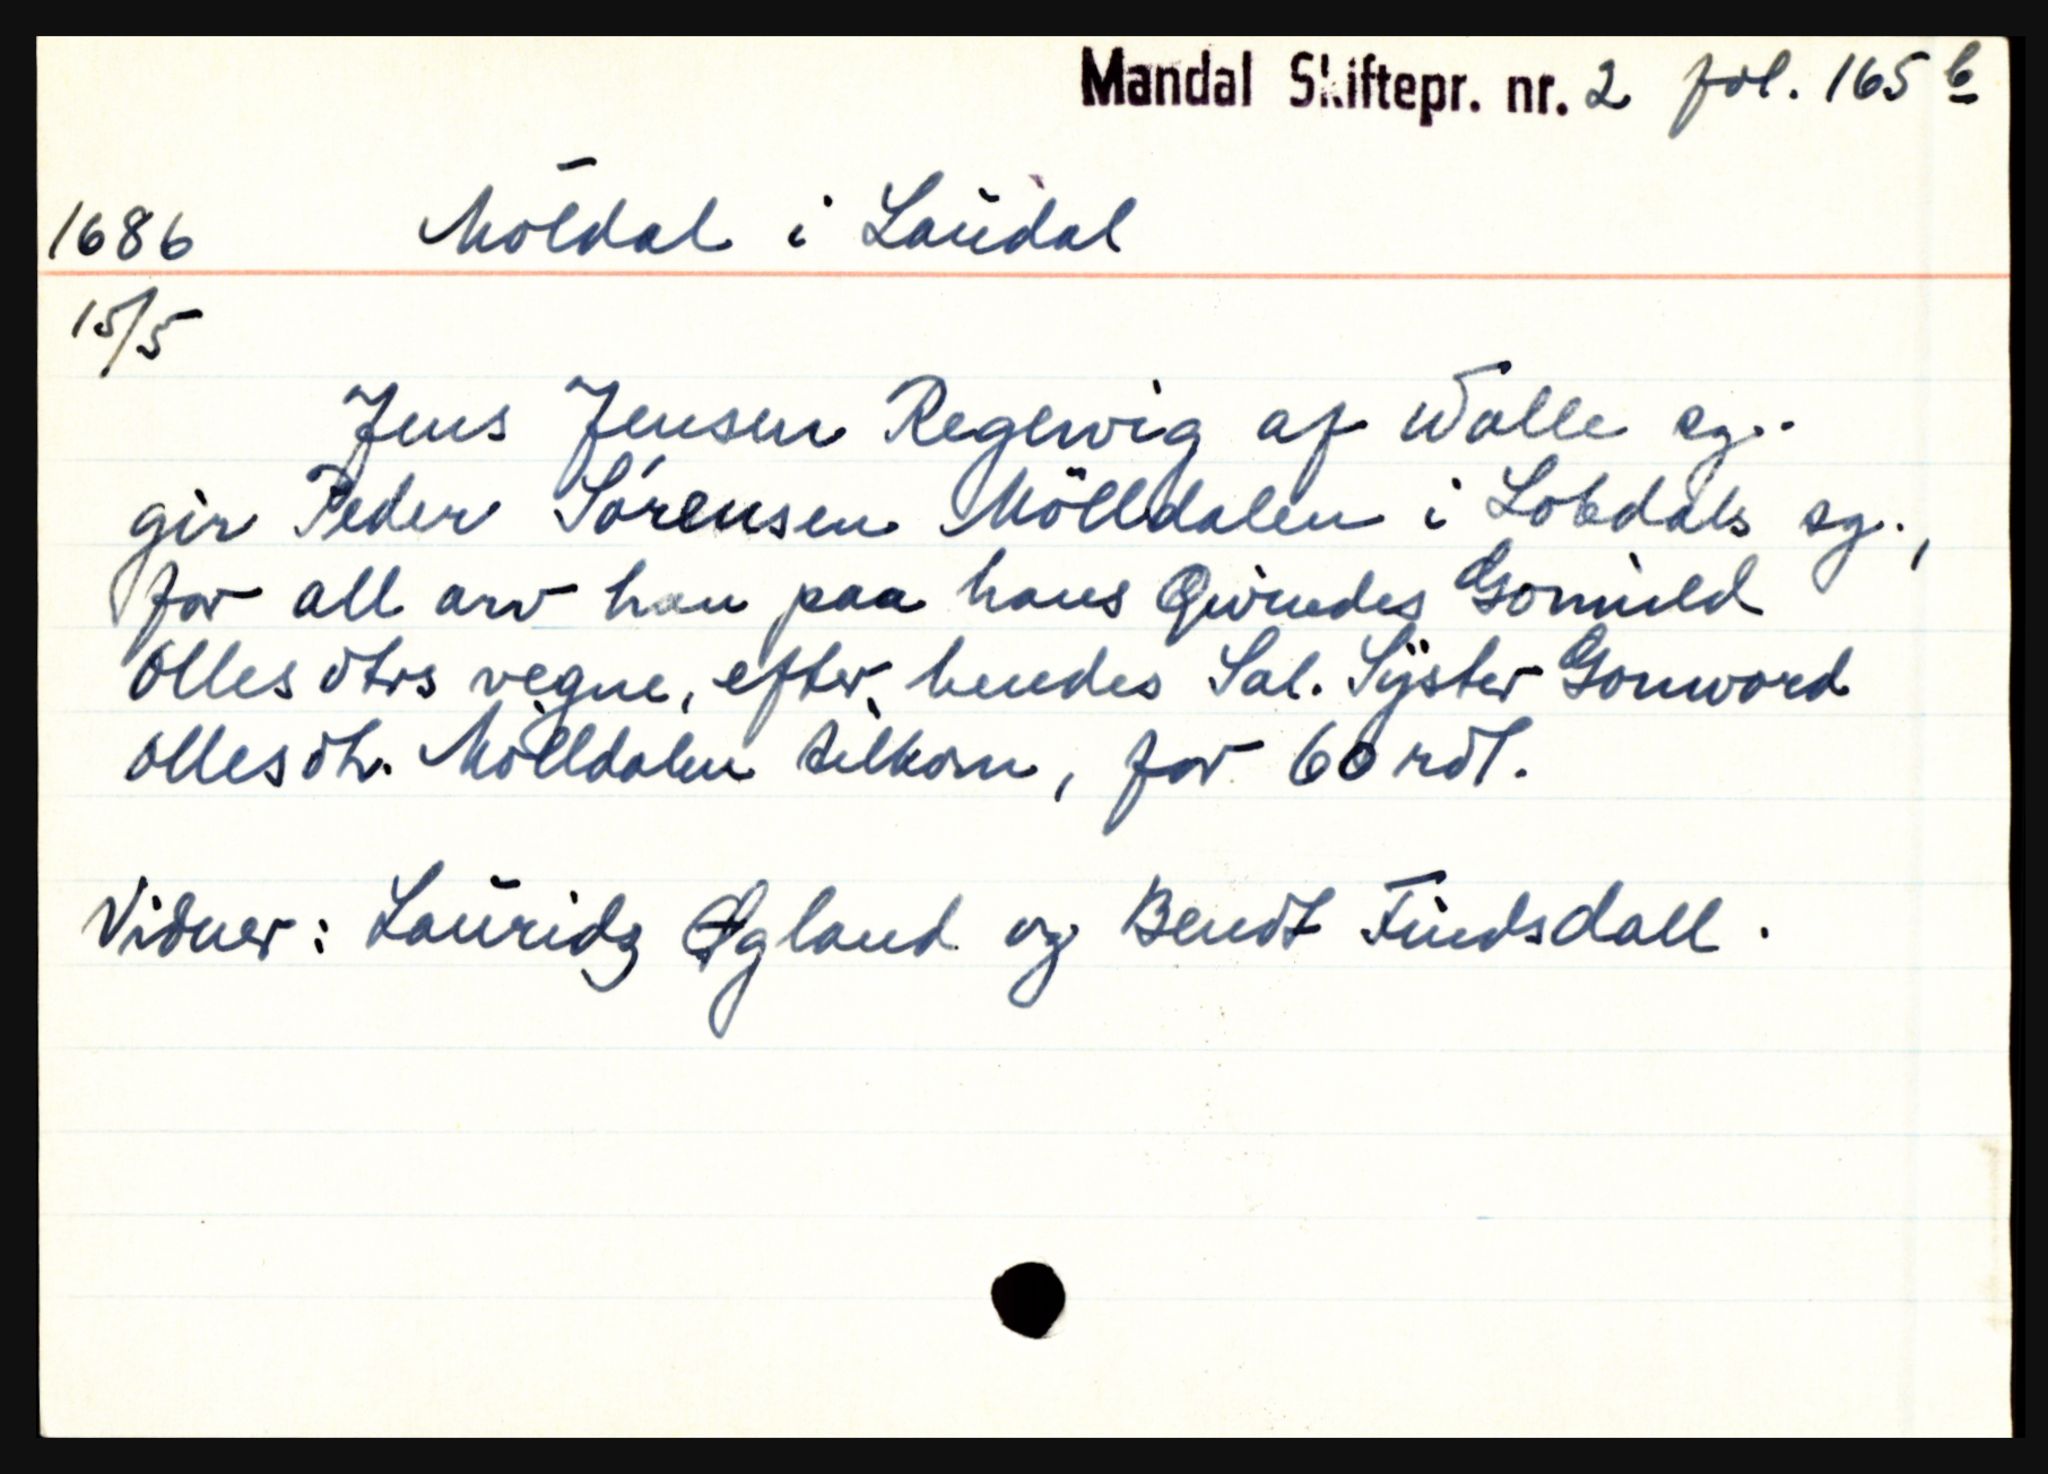 Mandal Skiftepr. nr. 2 fol. 165 b
1686 Mōldal i Laudal
15/5
Jens Jensen Regewig af Walle sg.
gir Peder Sørensen Mölldalen i Lobdals sg.,
for all arv han paa hans Qvindes Gonnild
Ollesdtrs vegne, efter hendes Sal. Syster Gonword
ollesdtr. Mölldalen tilkom, for 60 rdl.
Vidner: Lauridz Øgland og Bendt Findsdall.